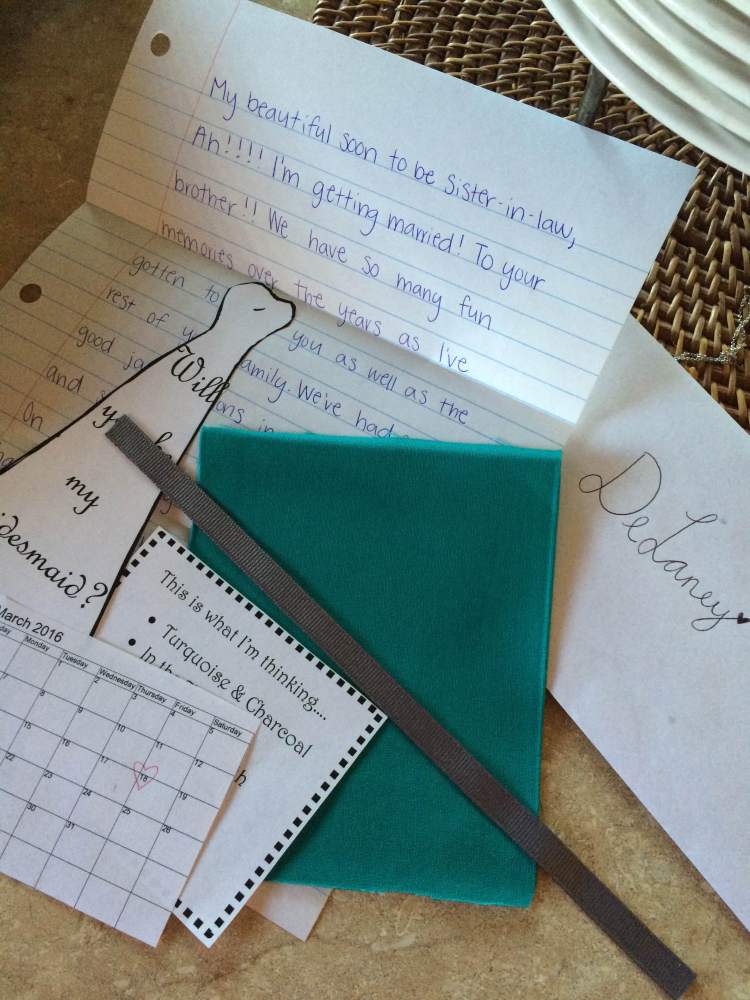 My beautiful soon to be sister-in-law,
Ah!!!! I'm getting married! To your
brother!! We have so many fun
memories over the years as I've
gotten to you as well as the
rest of family. We've had
good
and in
On
Will
my
desmaid?
DeLaney
This is what I'm thinking....
• Turquoise & Charcoal
• In the
March 2016
Monday Tuesday Wednesday Thursday Friday Saturday
1 2 3 4 5
7 8 9 10 11 12
15 16 17 18 19
22 23 24 25 26
30 31